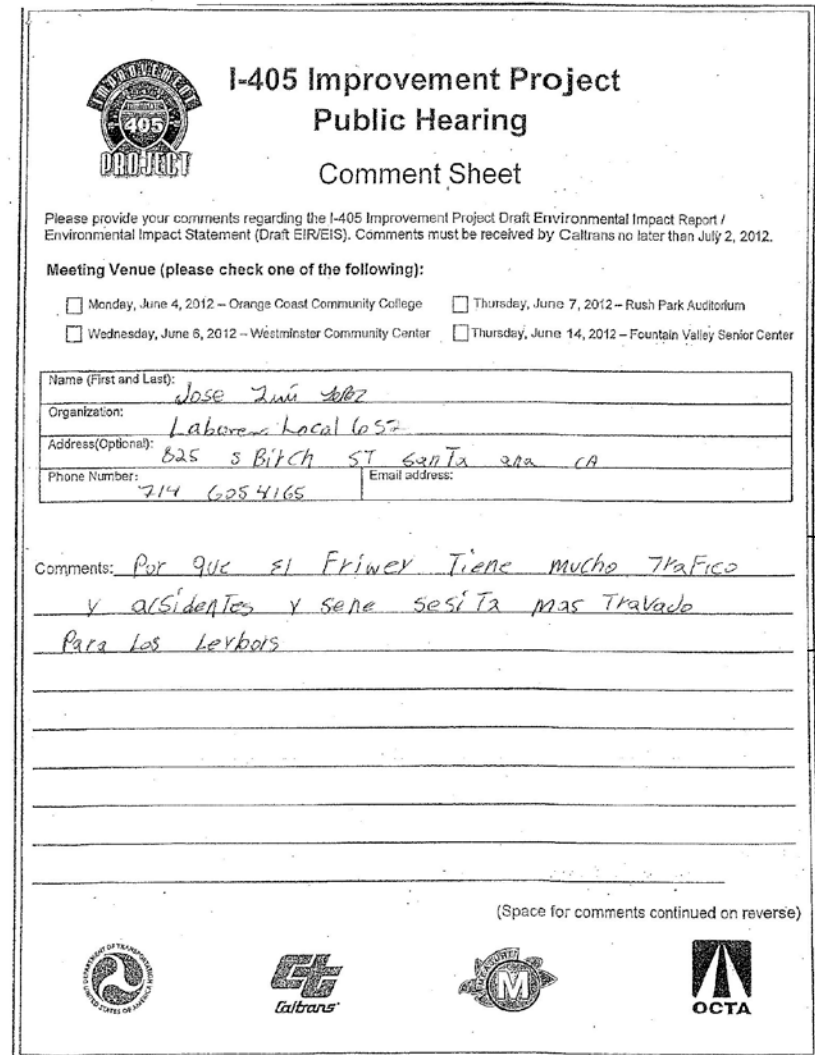 IMPROVEMENT
405
PROJECT
I-405 Improvement Project
Public Hearing
Comment Sheet
Please provide your comments regarding the I-405 Improvement Project Draft Environmental Impact Report /
Environmental Impact Statement (Draft EIR/EIS). Comments must be received by Caltrans no later than July 2, 2012.
Meeting Venue (please check one of the following):
Monday, June 4, 2012 – Orange Coast Community College
Thursday, June 7, 2012 – Rush Park Auditorium
Wednesday, June 6, 2012 – Westminster Community Center
Thursday, June 14, 2012 – Fountain Valley Senior Center
Name (First and Last): Jose Luis
Organization: Laborers Local 652
Address(Optional): 825 S Bitch ST SanTa ana CA
Phone Number: 714 605 4165
Email address:
Comments: Por que El Friwey Tiene mucho TraFico
y acsidenTes y sene sesiTa mas Travado
Para Los Leybors
(Space for comments continued on reverse)
DEPARTMENT OF TRANSPORTATION
UNITED STATES OF AMERICA
Ct
Caltrans
MEASURE
M
OCTA